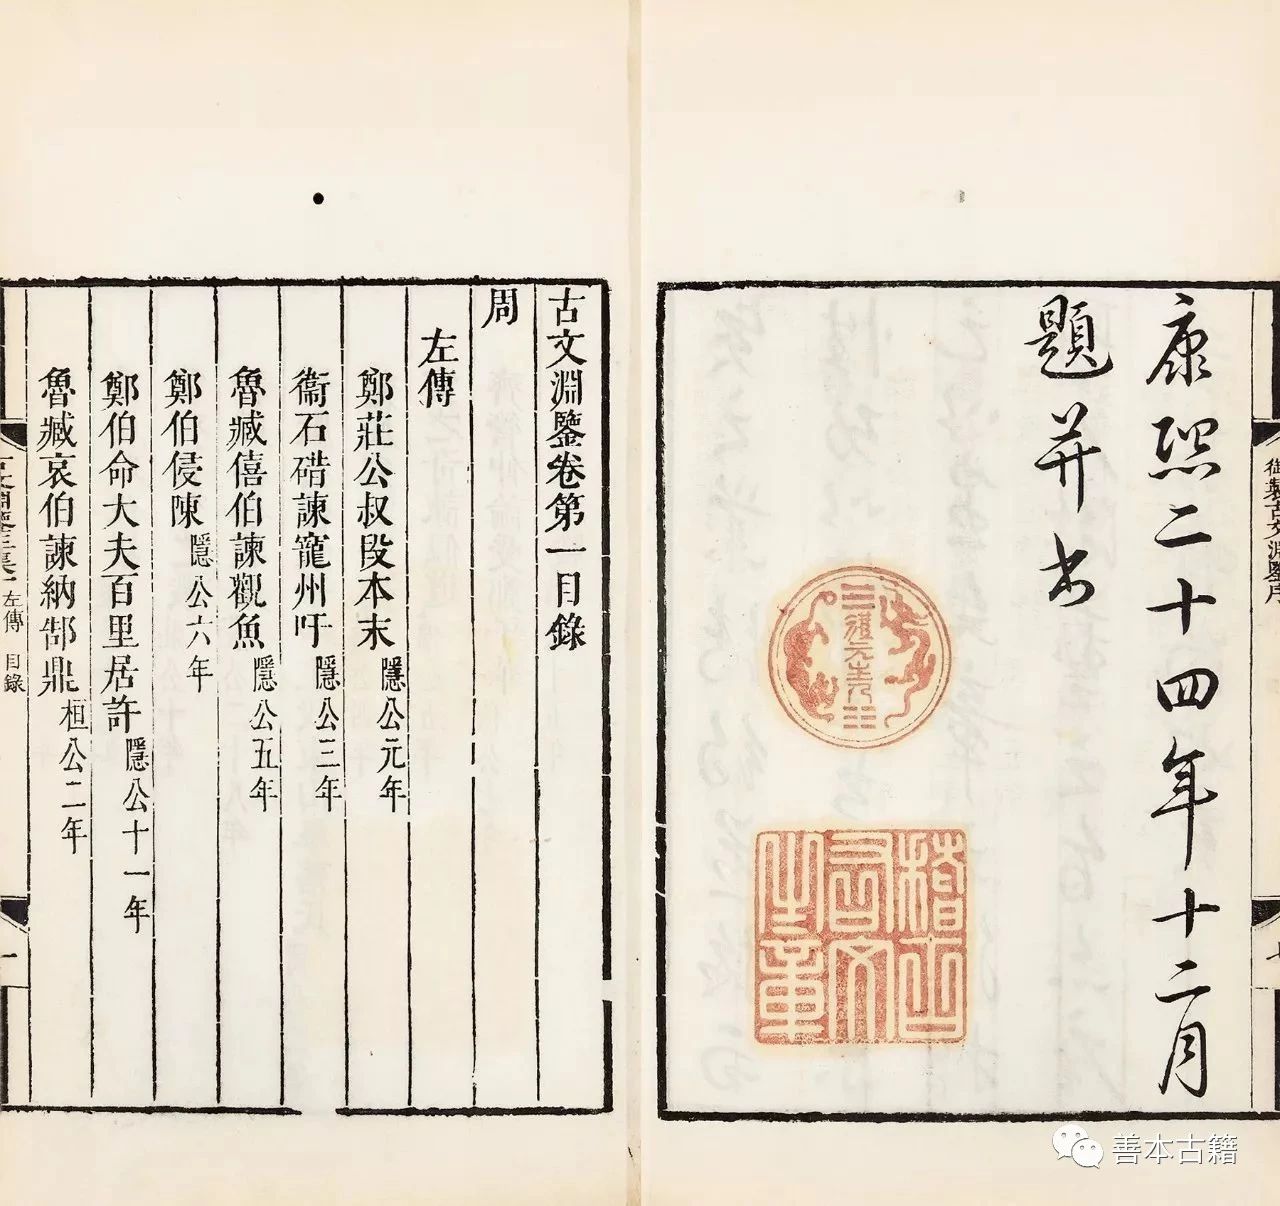 御製古文淵鑒序
康熙二十四年十二月
題并書
體元主人
稽古右文之章
古文淵鑒卷第一目錄
周
左傳
鄭莊公叔段本末 隱公元年
衞石碏諫寵州吁 隱公三年
魯臧僖伯諫觀魚 隱公五年
鄭伯侵陳 隱公六年
鄭伯命大夫百里居許 隱公十一年
魯臧哀伯諫納郜鼎 桓公二年
左傳 目錄
善本古籍